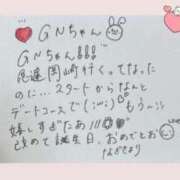 GNちゃん
GNちゃん!!!
昆邊岡崎行くってなった
のに…スタートからなんと
デートコースで(;ω;) もう〜
嬉しすぎたあ!!!
改めて誕生日、おめでとお